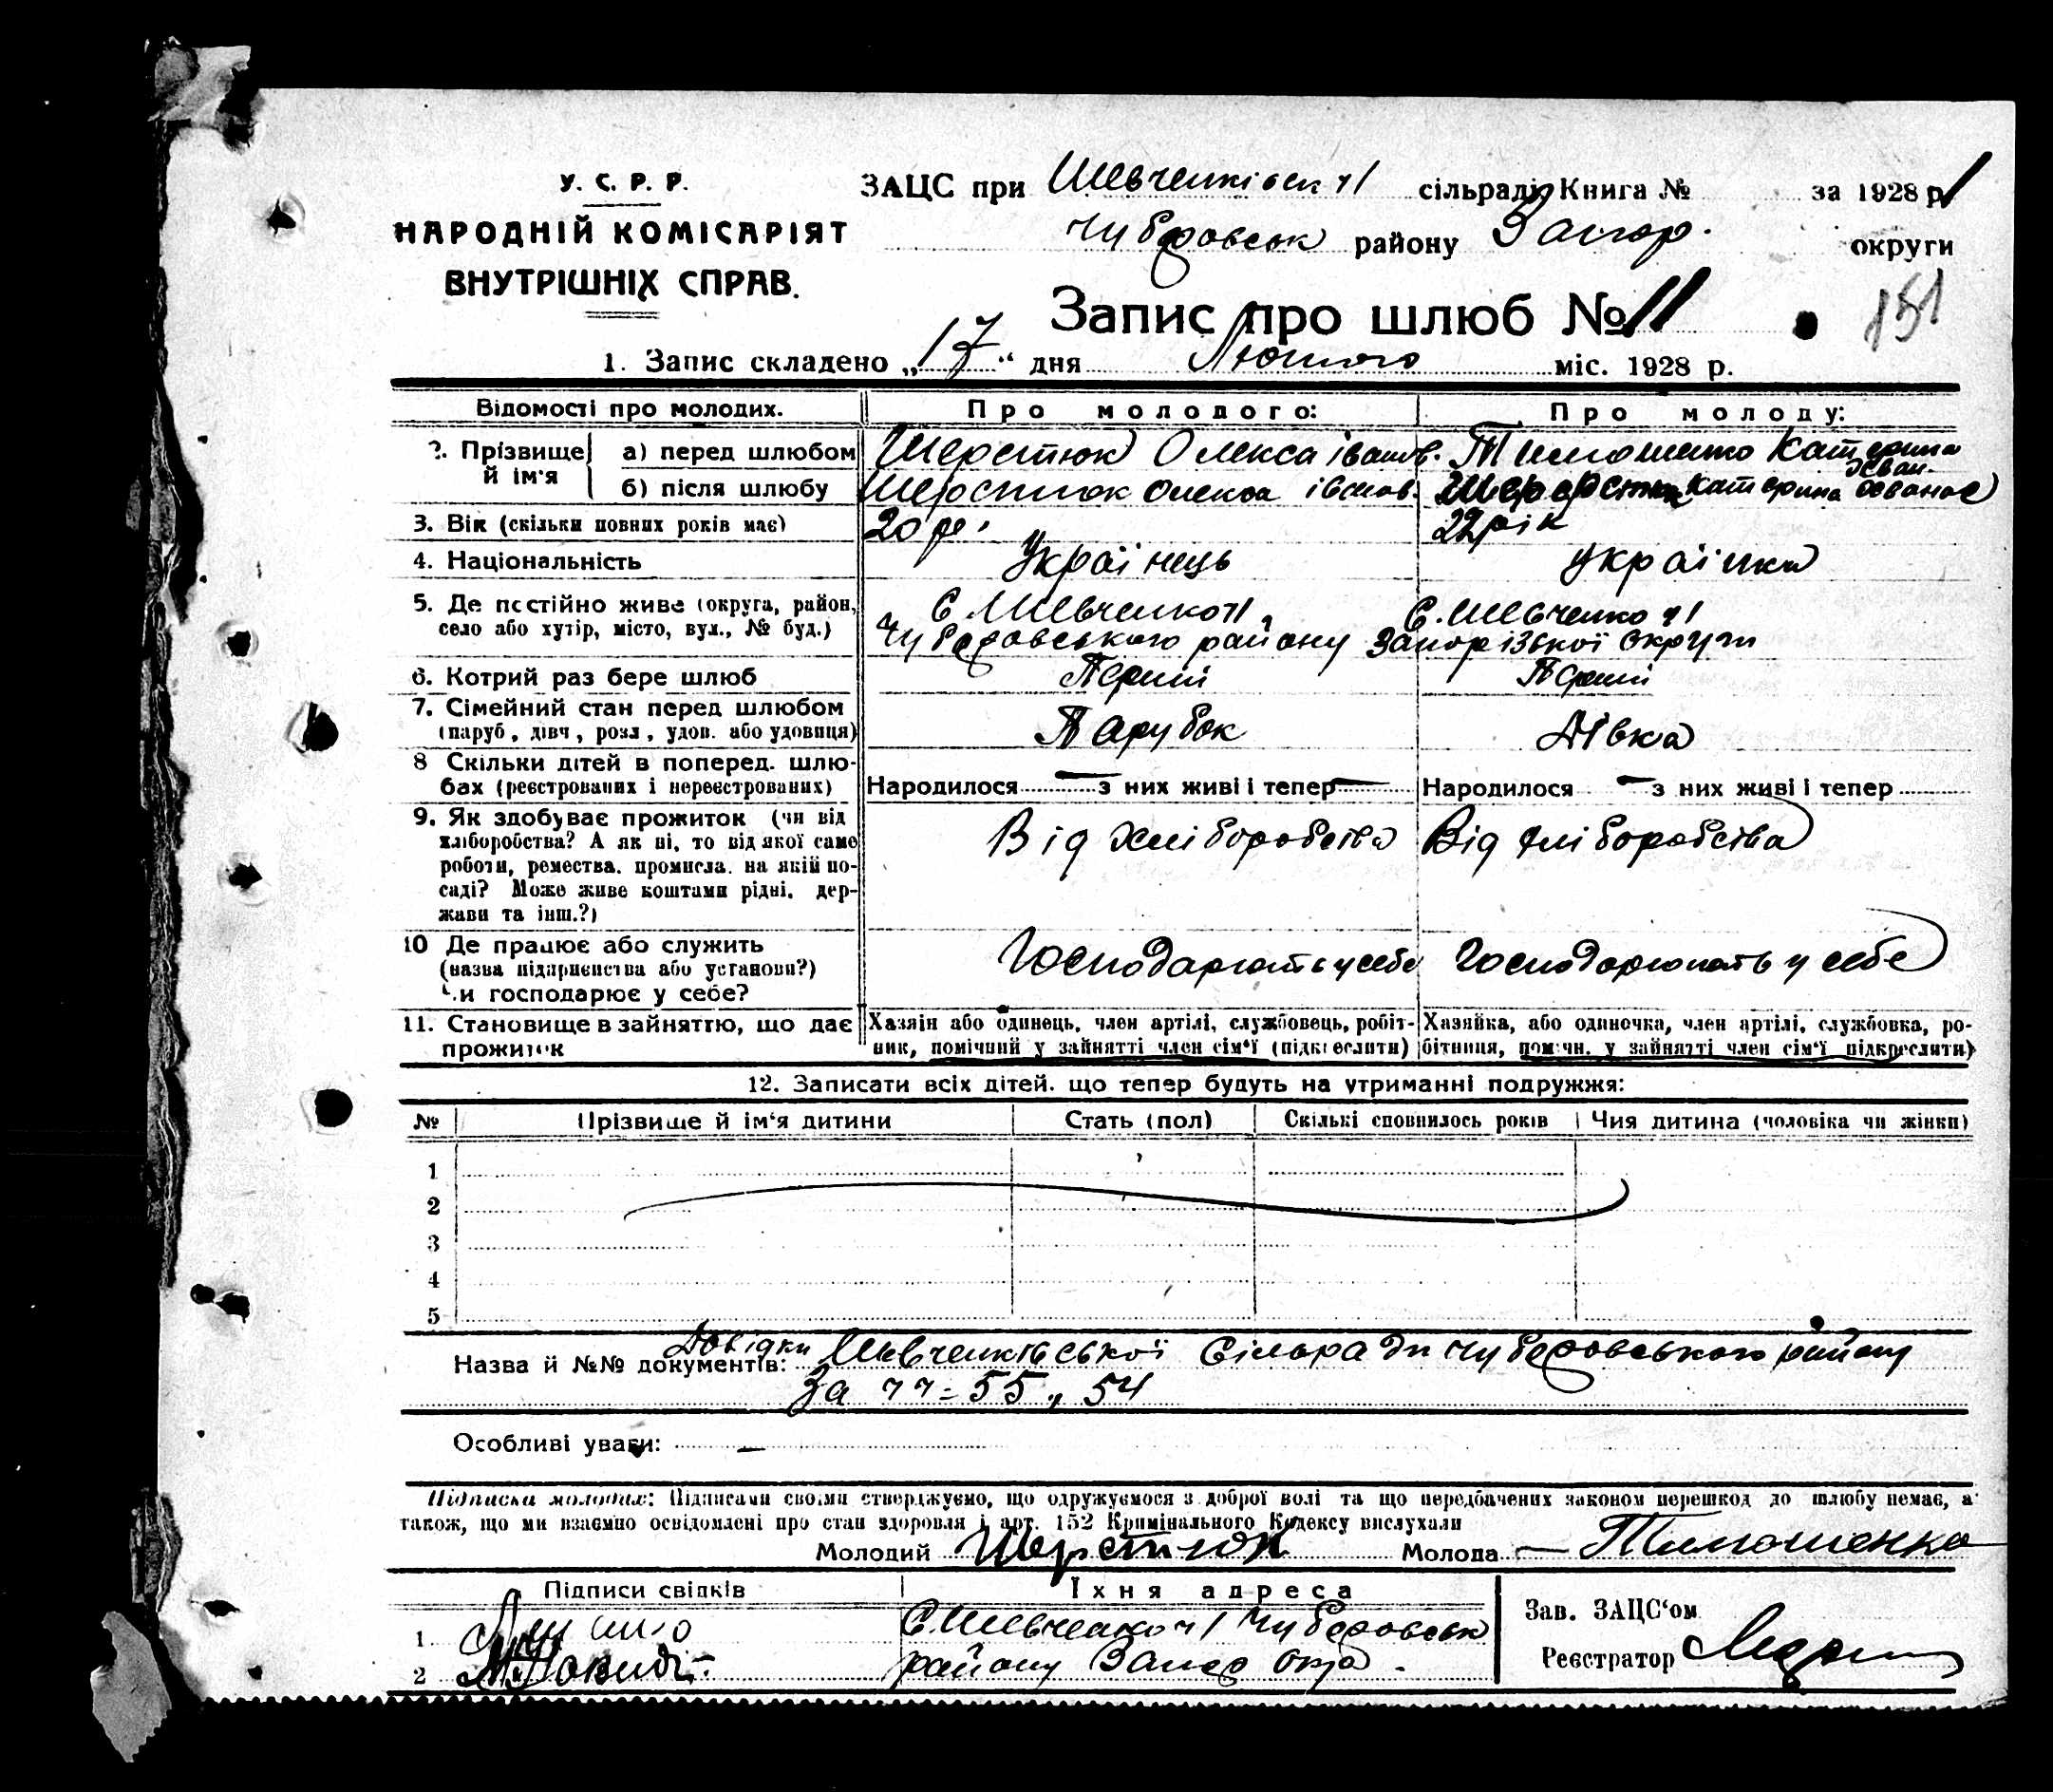 У. С. Р. Р.
НАРОДНІЙ КОМІСАРІЯТ
ВНУТРІШНІХ СПРАВ.
ЗАЦС при Шевченківск сільраді Книга № за 1928 р.
Чубаровськ району Запор. округи
Запис про шлюб № 11
151
1. Запис складено „17" дня Лютого міс. 1928 р.
Відомості про молодих. Про молодого: Про молоду:
2. Прізвище й ім'я
а) перед шлюбом Шерстюк Олекса іванов. Тимошенко Катерина Осван.
б) після шлюбу Шерстюк Олекса іванов. Шерстюк Катерина
3. Вік (скільки повних років має) 20 22 рік
4. Національність Українець Українка
5. Де постійно живе (округа, район, С. Шевченко С. Шевченко
село або хутір, місто, вул., № буд.) Чубаровського району Запорізької Округи
6. Котрий раз бере шлюб Перший Перший
7. Сімейний стан перед шлюбом
(паруб., дівч., розл., удов. або удовиця) Парубок Дівка
8 Скільки дітей в поперед. шлю-
бах (реєстрованих і нереєстрованих) Народилося — з них живі і тепер — Народилося — з них живі і тепер
9. Як здобуває прожиток (чи від
хліборобства? А як ні, то від якої саме Від хліборобства Від хліборобства
роботи, ремества. промисла. на якій по-
саді? Може живе коштами рідні, дер-
жави та інш.?)
10 Де працює або служить
(назва підприємства або установи?) Господарюють у себе Господарюють у себе
Чи господарює у себе?
11. Становище в зайняттю, що дає Хазяїн або одинець, член артілі, службовець, робіт- Хазяйка, або одиночка, член артілі, службовка, ро-
прожиток ник, помічний у зайнятті член сім'ї (підкреслити) бітниця, помічн. у зайнятті член сім'ї підкреслити)
12. Записати всіх дітей, що тепер будуть на утриманні подружжя:
№ Прізвище й ім'я дитини Стать (пол) Скількі сповнилось років Чия дитина (чоловіка чи жінки)
1
2
3
4
5
Назва й №№ документів: Довідки Шевченківської Сільради Чубаровського району
За = 55 „ 54
Особливі уваги: —
Підписка молодих: Підписами своїми стверджуємо, що одружуємося з доброї волі та що передбачених законом перешкод до шлюбу немає, а
також, що ми взаємно освідомлені про стан здоровля і арт. 152 Кримінального Кодексу вислухали
Молодий Шерстюк Молода — Тимошенко
Підписи свідків Їхня адреса
1 С. Шевченко Чубаровськ
2 району Запор Окр
Зав. ЗАЦС'ом
Реєстратор